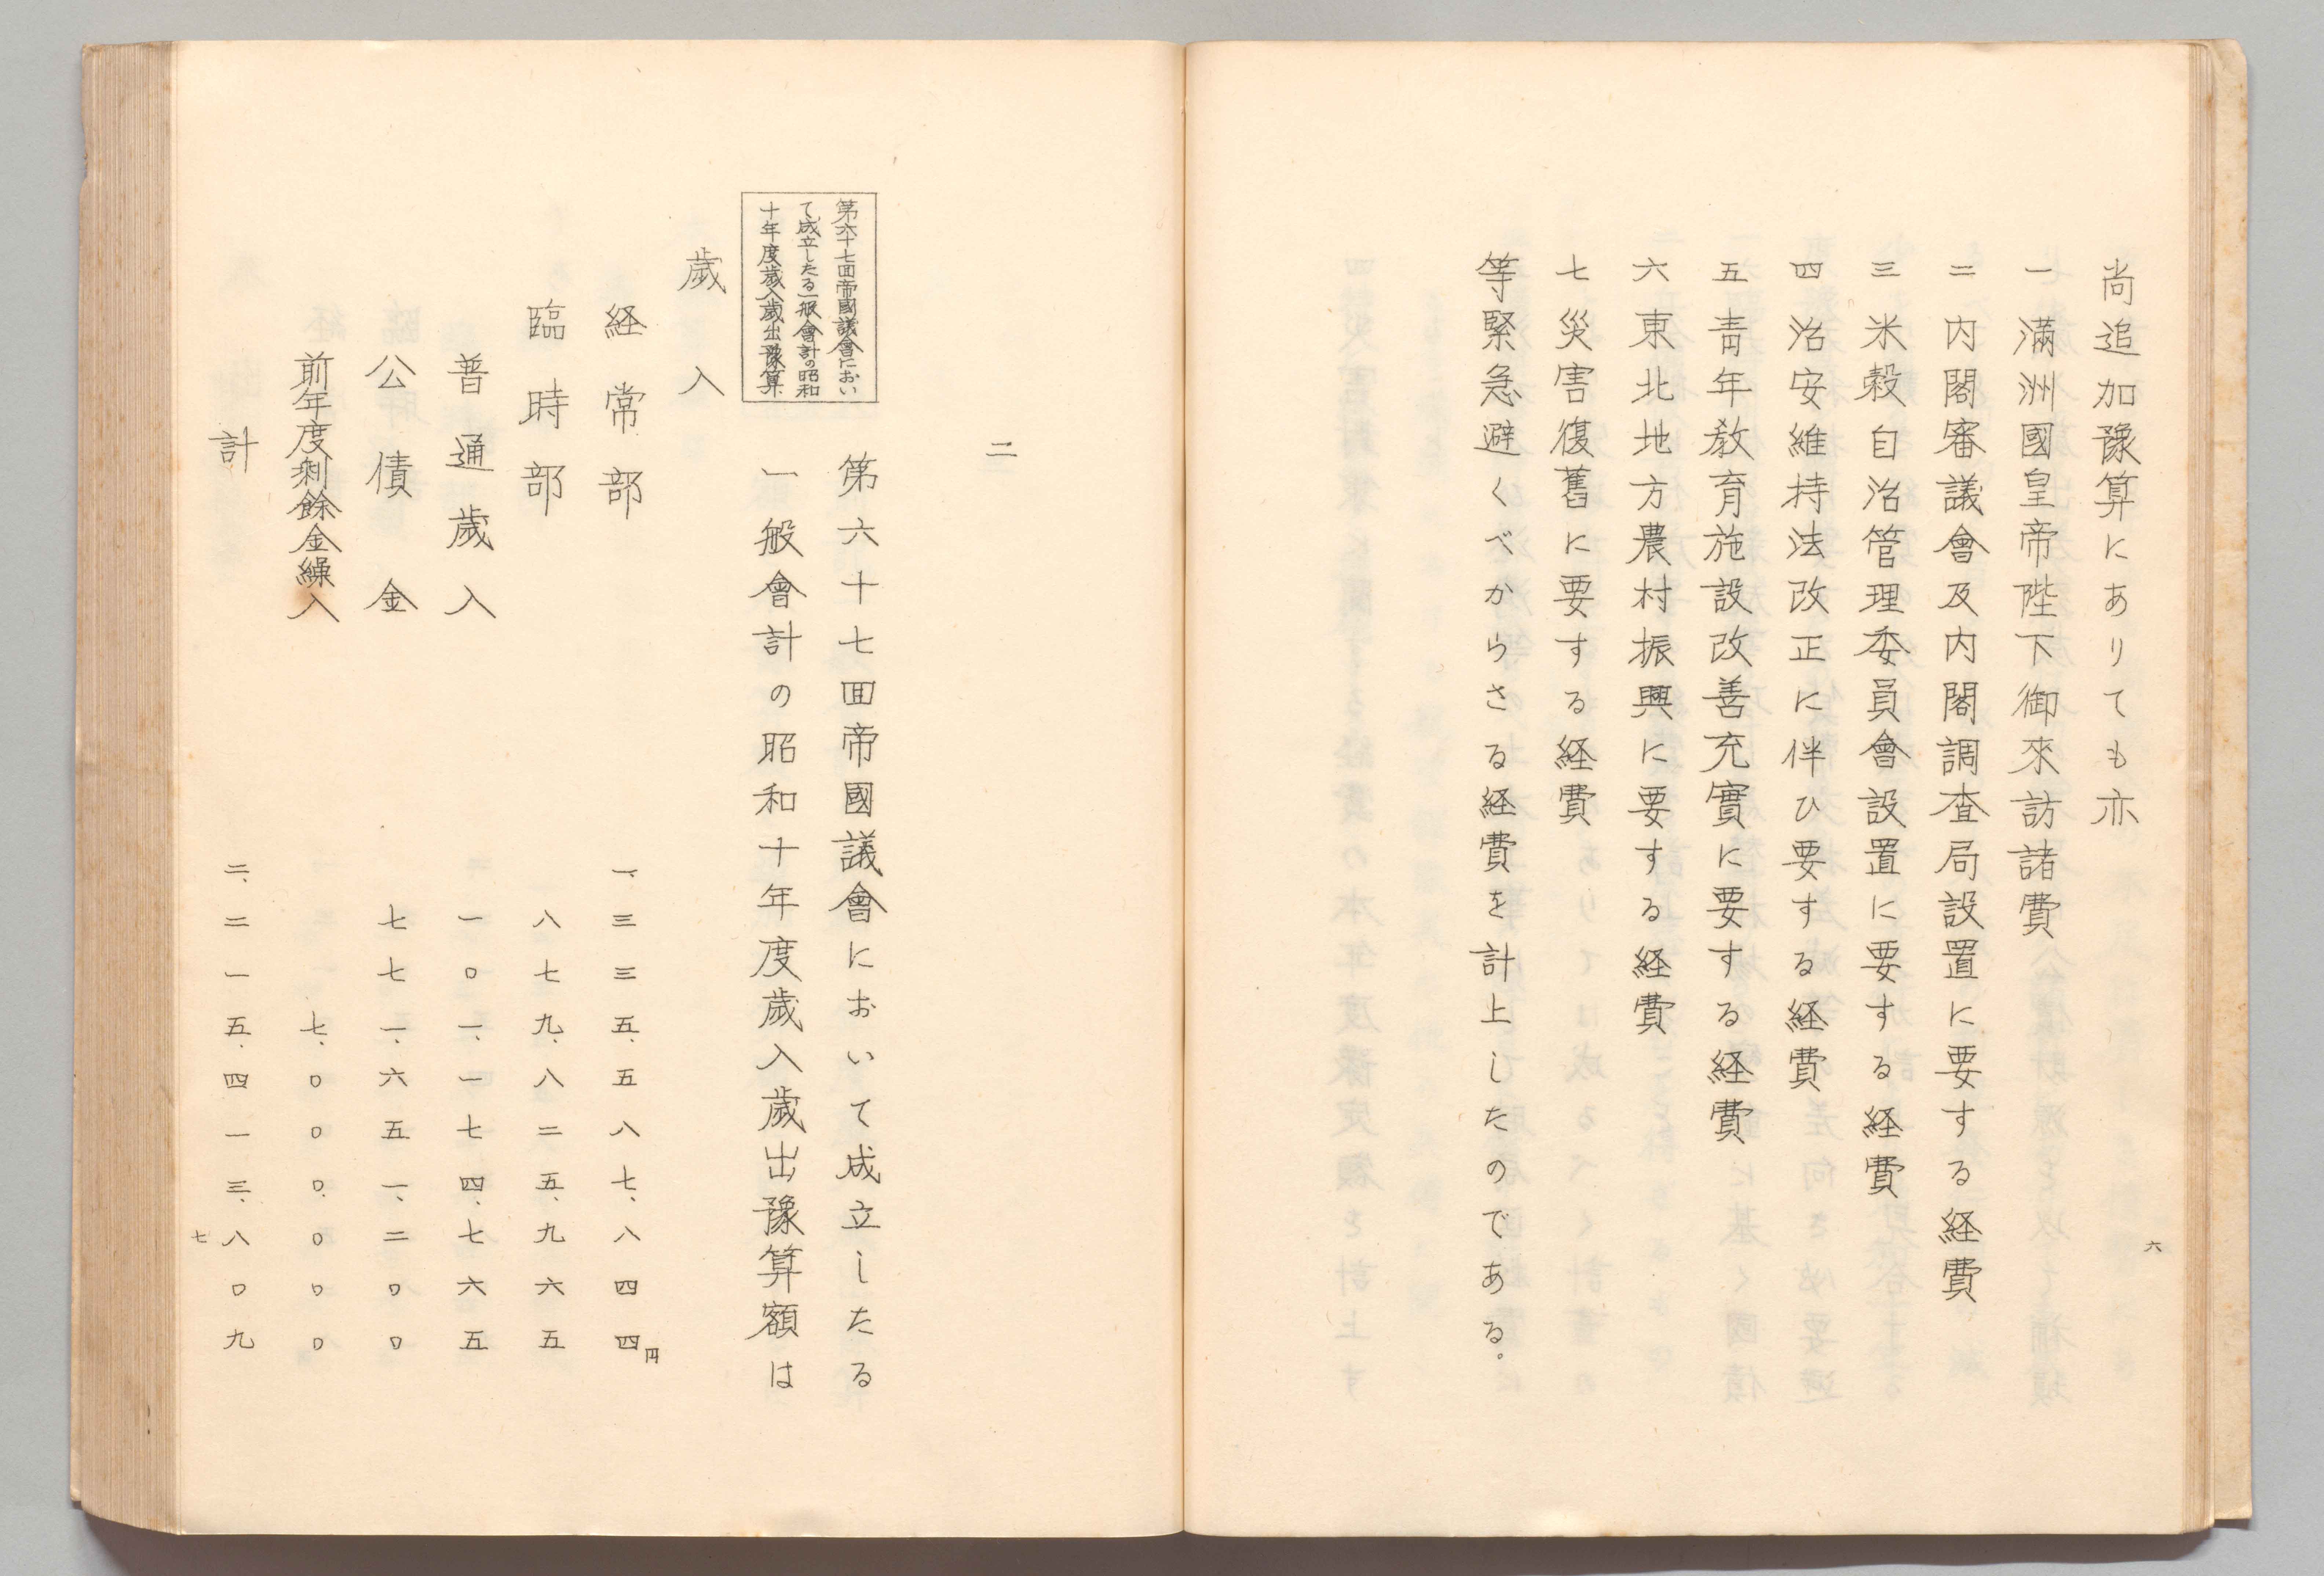 尚追加豫算にありても亦
一 滿洲國皇帝陛下御來訪諸費
二 内閣審議會及内閣調査局設置に要する経費
三 米穀自治管理委員會設置に要する経費
四 治安維持法改正に伴ひ要する経費
五 青年教育施設改善充實に要する経費
六 東北地方農村振興に要する経費
七 災害復舊に要する経費
等緊急避くべからさる経費を計上したのである。
六
二
第六十七回帝國議會におい
て成立したる一般會計の昭和
十年度歳入歳出豫算
第六十七回帝國議會において成立したる
一般會計の昭和十年度歳入歳出豫算額は
歳入
経常部 一、三三五、五八七、八四四円
臨時部 八七九、八二五、九六五
普通歳入 一〇一、一七四、七六五
公債金 七七一、六五一、二〇〇
前年度剰餘金繰入 七、〇〇〇、〇〇〇
計 二、二一五、四一三、八〇九
七